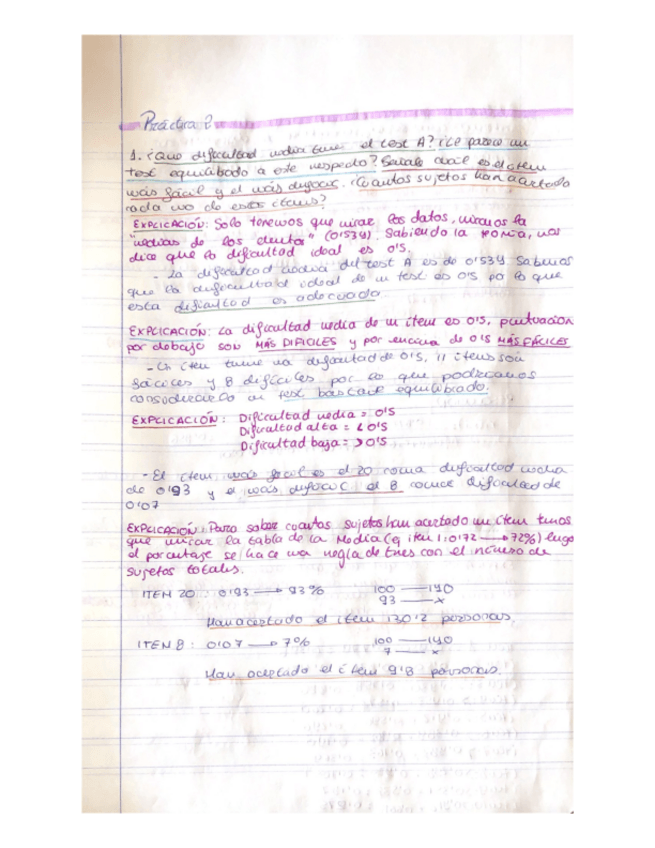 Práctica 2
1. ¿Que dificultad media tiene el test A? ¿Le parece un
test equilibrado a este respecto? Señale cual es el ítem
más fácil y el más difícil. ¿Cuantos sujetos han acertado
cada uno de estos ítems?
EXPLICACIÓN: Solo tenemos que mirar los datos, miramos la
"medias de los aciertos" (0'534). Sabiendo la teoría, nos
dice que la dificultad ideal es 0'5.
- La dificultad media del test A es de 0'534 Sabemos
que la dificultad ideal de un test es 0'5 por lo que
esta dificultad es adecuada.
EXPLICACIÓN: La dificultad media de un ítem es 0'5, puntuación
por debajo son MÁS DIFICILES y por encima de 0'5 MÁS FÁCILES
- Un ítem tiene una dificultad de 0'5, 11 ítems son
fáciles y 8 difíciles por lo que podríamos
considerarlo un test bastante equilibrado.
EXPLICACIÓN: Dificultad media = 0'5
Dificultad alta = < 0'5
Dificultad baja = > 0'5
- El ítem más fácil es el 20 con una dificultad media
de 0'93 y el más difícil el 8 con dificultad de
0'07
EXPLICACIÓN: Para saber cuantos sujetos han acertado un ítem tenemos
que mirar la tabla de la Media (ej item 1: 0'72 → 72%) luego
el porcentaje se hace una regla de tres con el número de
sujetos totales.
ITEN 20: 0'93 → 93% 100 — 140
93 — x
Han acertado el item 130'2 personas.
ITEN 8: 0'07 → 7% 100 — 140
7 — x
Han acertado el ítem 9'8 personas.